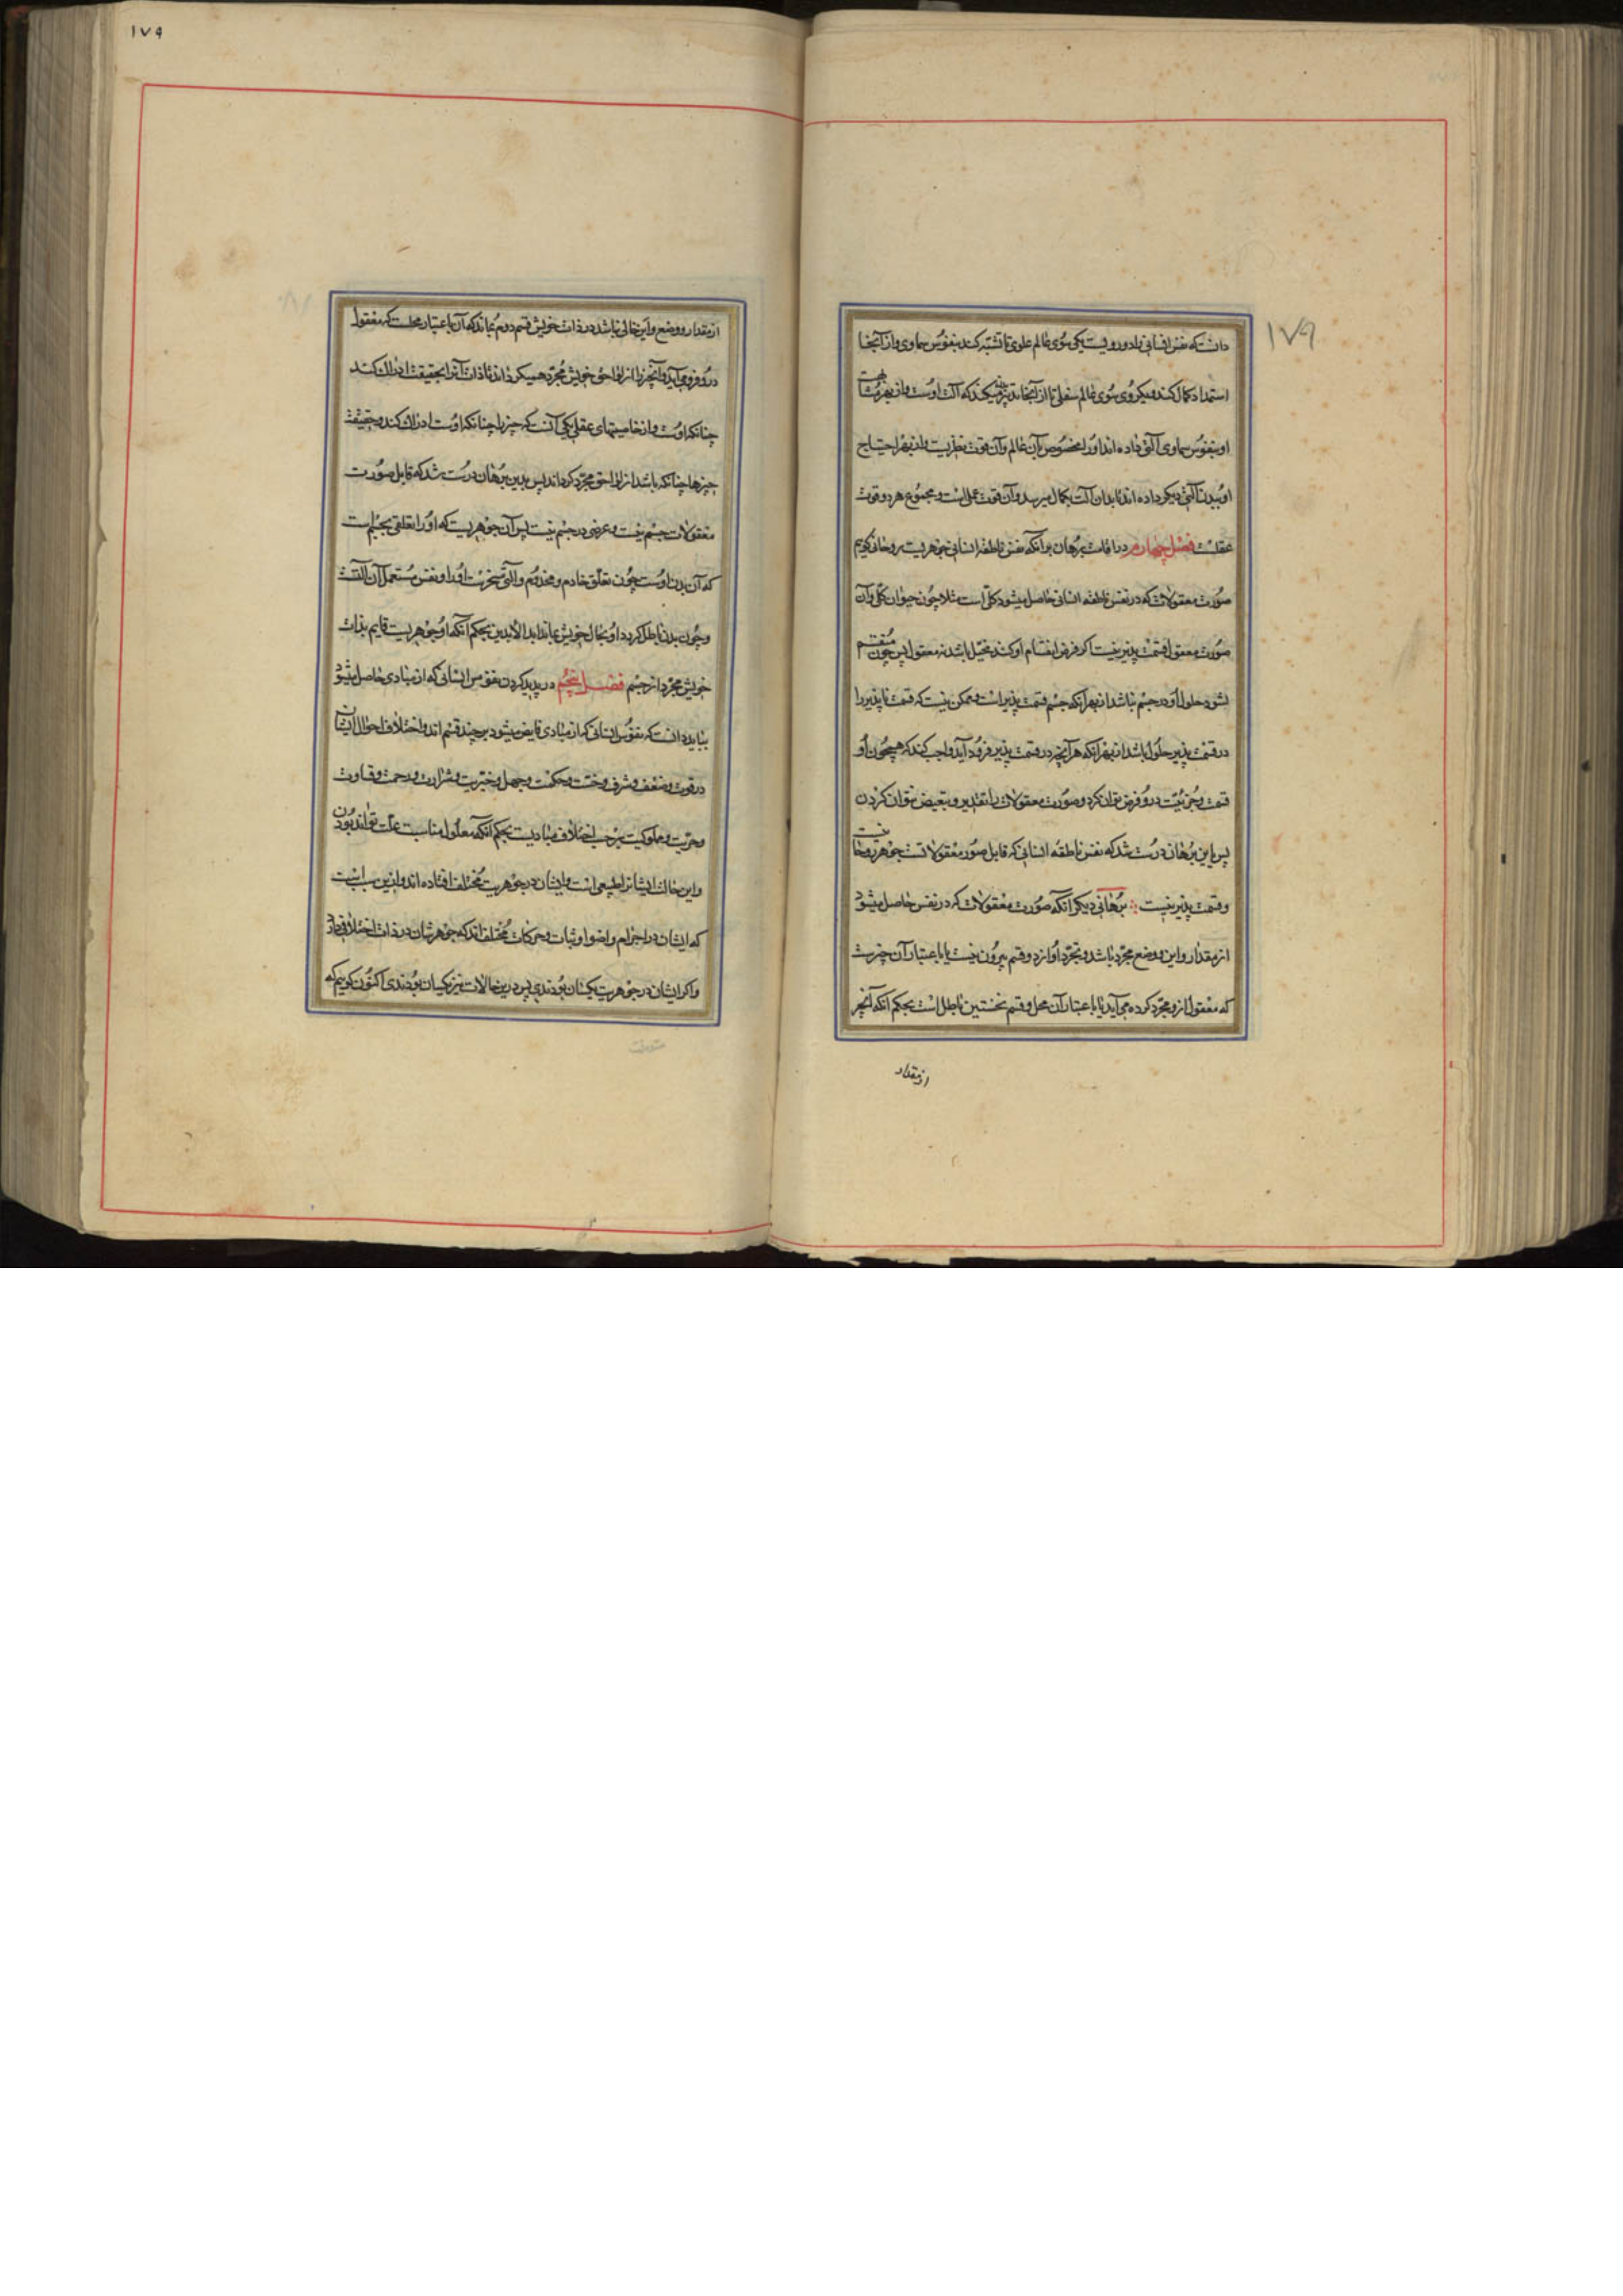 ۱۷۹
دانست که نفس انسانی را دو رویست یکی سوی عالم علوی تا تشبّه کند بنفوس سماوی و از آنجا
استمداد کمال کند و یکروی سوی عالم سفلی تا از آنجا تدبیر تن میکند که آلت اوست و از بهر مشابهت
او بنفوس سماوی آلتی داده اند او را مخصوص بآن عالم و آن قوت نظریست و از بهر احتیاج
او ببدن آلتی دیگر داده اند تا بدان آلت بکمال میرسد و آن قوت عملی است و مجموع هر دو قوت
عقلست فصل چهارم در اقامت برهان بر آنکه نفس ناطقه انسانی جوهریست روحانی گوییم
صورت معقولات که در نفس ناطقه انسانی حاصل میشود کلّی است مثلا چون حیوان کلّی و آن
صورت معقول قسمت پذیر نیست اگر فرض انقسام او کند متخیّل باشد نه معقول پس چون منقسم
نشود حلول او در جسم نباشد از بهر آنکه جسم قسمت پذیر است و ممکن نیست که قسمت ناپذیر را
در قسمت پذیر حلول باشد از بهر آنکه هر آنچه در قسمت پذیر فرود آید واجب کند که همچون او
قسمت و جزئیّت درو فرض توان کرد و صورت معقولات را تقدیر و تبعیض نتوان کردن
پس باین برهان درست شد که نفس ناطقه انسانی که قابل صور معقولاتست جوهر روحانیست
و قسمت پذیر نیست برهانی دیگر آنکه صورت معقولات که در نفس حاصل میشود
از مقدار و این و وضع مجرّد باشد و تجرّد او از دو قسم بیرون نیست یا باعتبار آن چیزست
که معقول ازو مجرّد کرده می آید یا باعتبار آن محل و قسم نخستین باطل است بحکم آنکه آنچیز
از مقدار
۱۷۹
از مقدار و وضع و این خالی نباشد در ذات خویش قسم دوم بماند که آن باعتبار محلست که معقول
درو فرو می آید و آنچیز را از لواحق خویش مجرّد همیگرداند تا ذات آنرا بحقیقت ادراک کند
چنانکه اوست و از خاصیتهای عقلی یکی آنست که چیز را چنانکه اوست ادراک کند و بحقیقت
چیزها چنانکه باشد از لواحق مجرّد گرداند پس بدین برهان درست شد که قابل صورت
معقولات جسم نیست و عرضی در جسم نیست پس آن جوهریست که او را تعلّقی بجسم است
که آن بدن اوست چون تعلّق خادم و مخدوم و آلتی مسخرست او را و نفس مستعمل آن آلتست
و چون بدن باطل گردد او بحال خویش بماند ابد الآبدین بحکم آنکه او جوهریست قایم بذات
خویش مجرّد از جسم فصل پنجم در پدید کردن نفوس انسانی که از مبادی حاصل میشود
بباید دانست که نفوس انسانی که از مبادی فایض میشود بر چند قسم اند و اختلاف احوال ایشان
در قوت و ضعف و شرف و خست و حکمت و جهل و خیریت و شرارت و رحمت و قساوت
و حریّت و مملوکیت بر حسب اختلاف مبادیست بحکم آنکه معلول مناسبت علّت تواند بودن
و این حالت ایشانرا طبیعی است و ایشان در جوهریت مختلف افتاده اند و ازین سبب است
که ایشان در اجرام و اضوا و ثبات و حرکات مختلف اند که جوهرشان در ذات اختلافی دارد
و اگر ایشان در جوهریت یکسان بودندی پس درین حالات نیز یکسان بودندی اکنون گوییم که